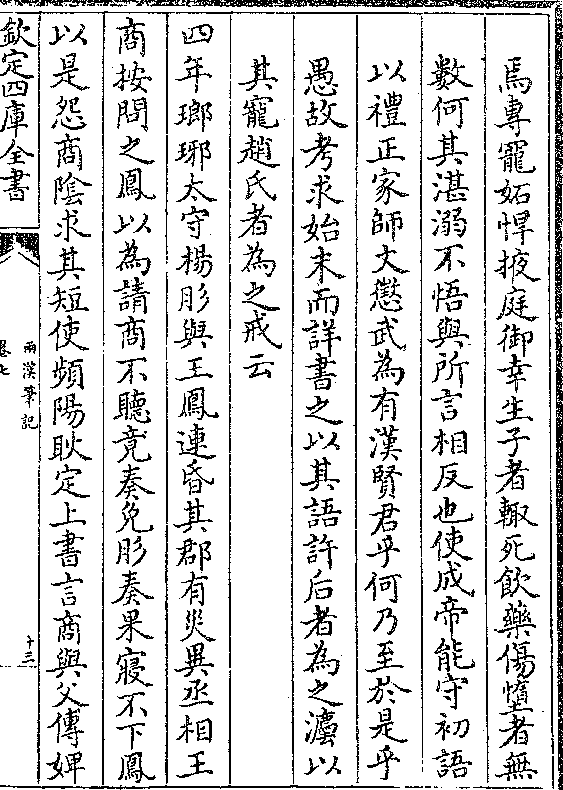 焉專寵妬悍掖庭御幸生子者輒死飲藥傷墮者無
數何其湛溺不悟與所言相反也使成帝能守初語
以禮正家師文懲武為有漢賢君乎何乃至於是乎
愚故考求始末而詳書之以其語許后者為之灋以
其寵趙氏者為之戒云
四年瑯琊太守楊肜與王鳳連昏其郡有災異丞相王
商按問之鳳以為請商不聽竟奏免肜奏果寢不下鳳
以是怨商陰求其短使頻陽耿定上書言商與父傅婢
欽定四庫全書
兩漢筆記
卷七
十三